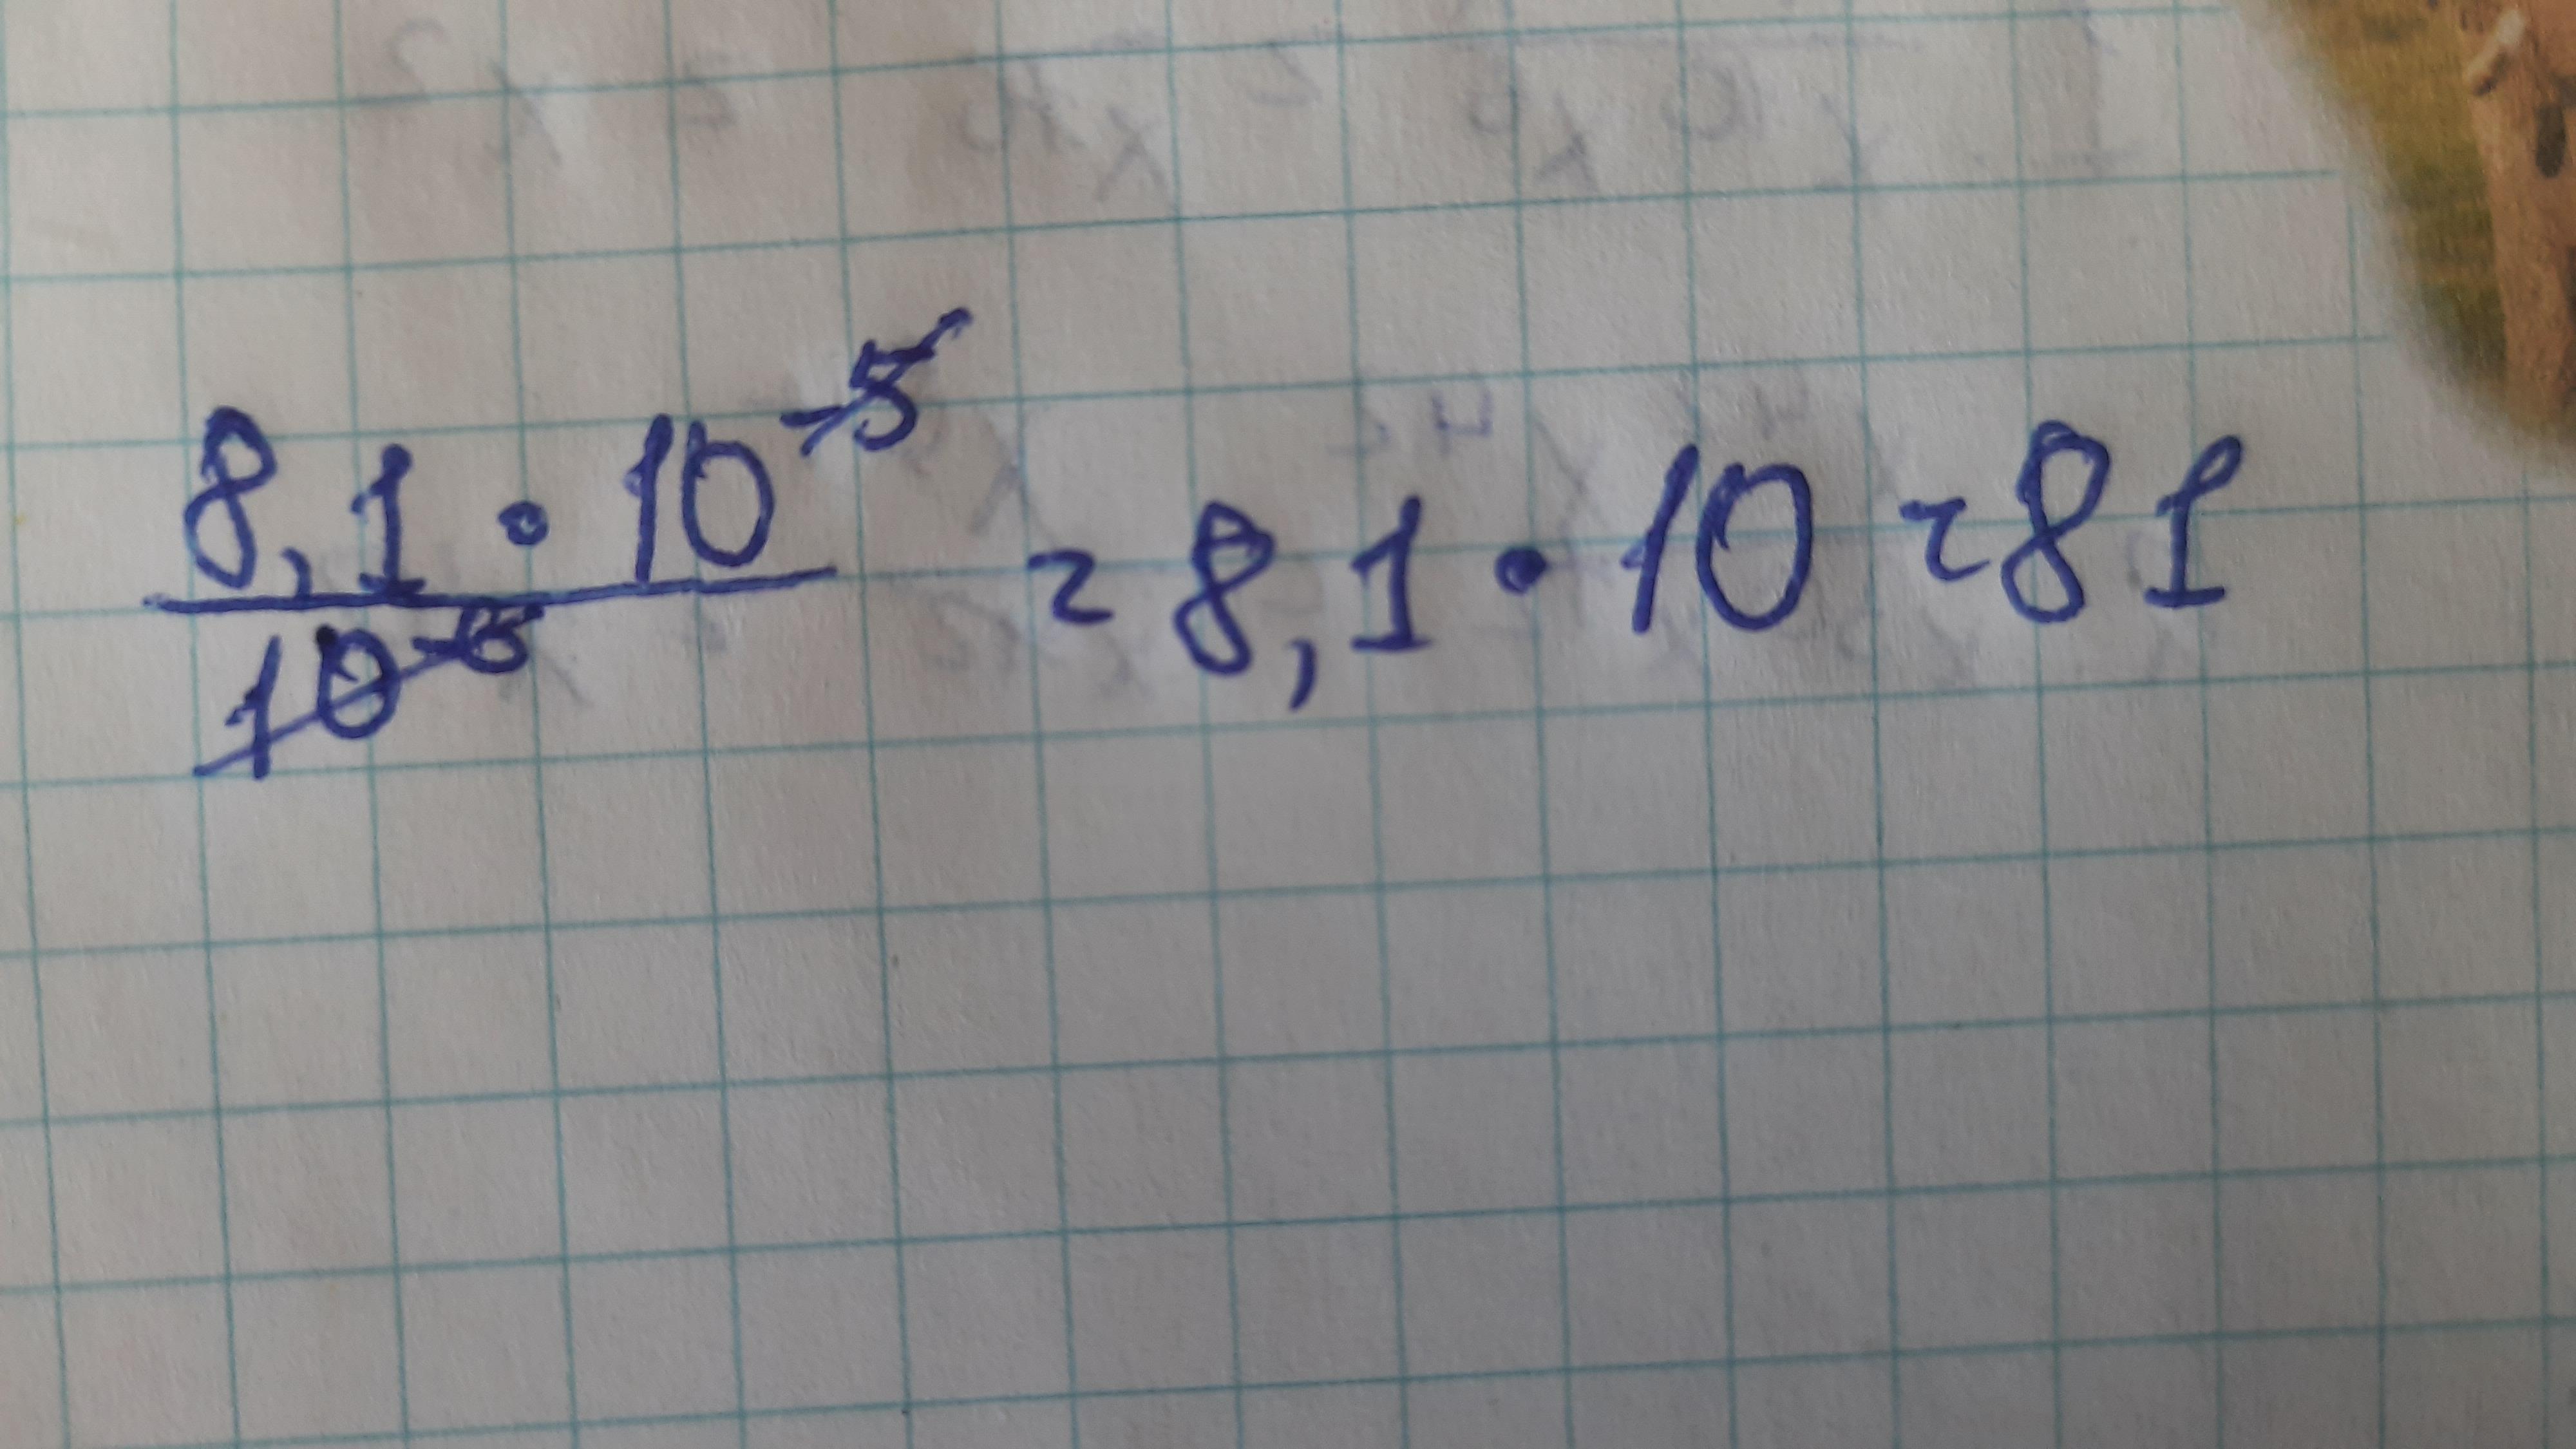 8,1 • 10⁻⁵ / 10⁻⁵ = 8,1 • 10 = 81